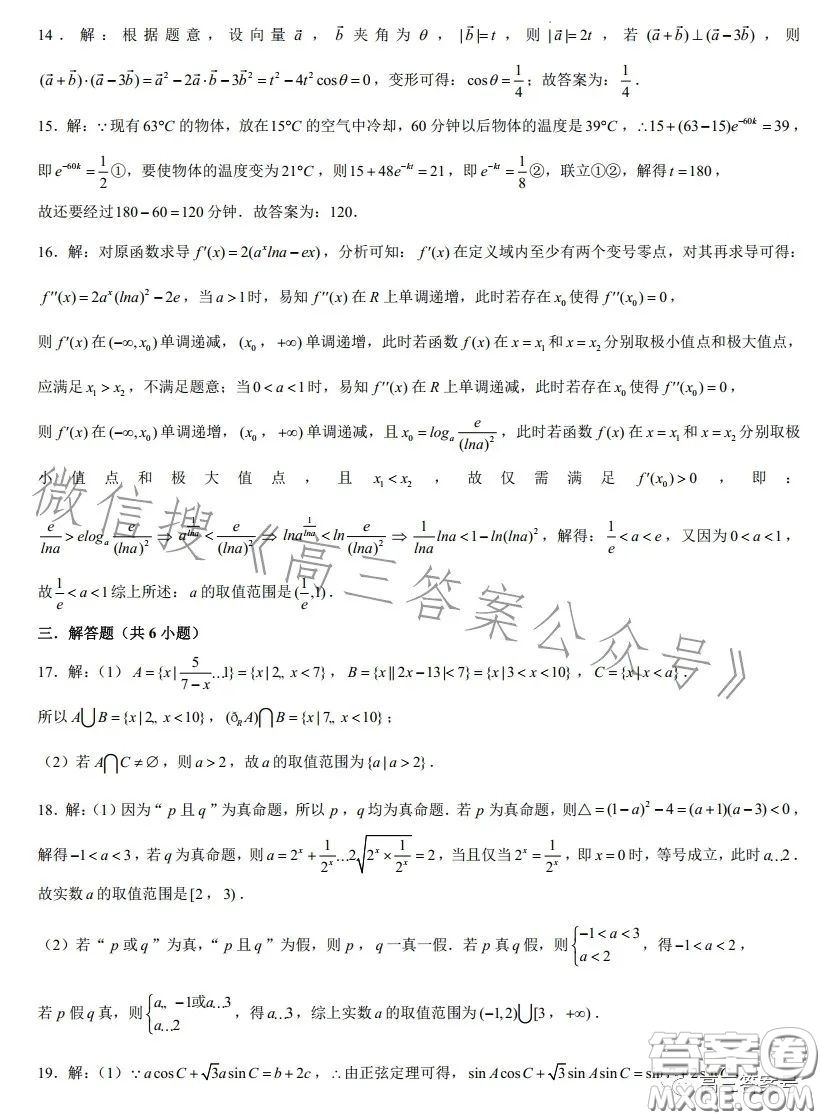 14．解：根据题意，设向量 a⃗ ，b⃗ 夹角为 θ ，|b⃗|=t ，则 |a⃗|=2t ，若 (a⃗+b⃗)⊥(a⃗−3b⃗)，则
(a⃗+b⃗)·(a⃗−3b⃗)=a⃗²−2a⃗·b⃗−3b⃗²=t²−4t²cosθ=0，变形可得：cosθ=1/4；故答案为：1/4．
15．解：∵现有63°C 的物体，放在15°C 的空气中冷却，60 分钟以后物体的温度是39°C，∴15+(63−15)e^{−60k}=39，
即 e^{−60k}=1/2①，要使物体的温度变为21°C，则15+48e^{−kt}=21，即 e^{−kt}=1/8②，联立①②，解得 t=180，
故还要经过180−60=120 分钟．故答案为：120．
16．解：对原函数求导 f′(x)=2(a^x lna−ex)，分析可知：f′(x) 在定义域内至少有两个变号零点，对其再求导可得：
f′′(x)=2a^x(lna)²−2e，当 a>1时，易知 f′′(x) 在 R 上单调递增，此时若存在 x₀ 使得 f′′(x₀)=0，
则 f′(x) 在 (−∞,x₀) 单调递减，(x₀，+∞) 单调递增，此时若函数 f(x) 在 x=x₁ 和 x=x₂ 分别取极小值点和极大值点，
应满足 x₁>x₂，不满足题意；当 0<a<1时，易知 f′′(x) 在 R 上单调递减，此时若存在 x₀ 使得 f′′(x₀)=0，
则 f′(x) 在 (−∞,x₀) 单调递增，(x₀，+∞) 单调递减，且 x₀=log_a e/(lna)²，此时若函数 f(x) 在 x=x₁ 和 x=x₂ 分别取极
小值点和极大值点，且 x₁<x₂，故仅需满足 f′(x₀)>0，即：
e/lna>elog_a e/(lna)² ⇒ a^{1/lna}<e/(lna)² ⇒ lna^{1/lna}<ln e/(lna)² ⇒ 1/lna lna<1−ln(lna)²，解得：1/e<a<e，又因为 0<a<1，
故 1/e<a<1综上所述：a 的取值范围是(1/e,1)．
三．解答题（共 6 小题）
17．解：（1）A={x|5/(7−x)…1}={x|2,, x<7}，B={x||2x−13|<7}={x|3<x<10}，C={x|x<a}．
所以 A⋃B={x|2,, x<10}，(ð_R A)⋂B={x|7,, x<10}；
（2）若 A⋂C≠∅，则 a>2，故 a 的取值范围为{a|a>2}．
18．解：（1）因为“ p 且 q ”为真命题，所以 p，q 均为真命题．若 p 为真命题，则△=(1−a)²−4=(a+1)(a−3)<0，
解得 −1<a<3，若 q 为真命题，则 a=2^x+1/2^x…2√(2^x×1/2^x)=2，当且仅当 2^x=1/2^x，即 x=0时，等号成立，此时 a…2．
故实数 a 的取值范围是[2，3)．
（2）若“ p 或 q ”为真，“ p 且 q ”为假，则 p，q 一真一假．若 p 真 q 假，则{−1<a<3 a<2，得 −1<a<2，
若 p 假 q 真，则{a,, −1或a…3 a…2，得 a…3，综上实数 a 的取值范围为(−1,2)⋃[3，+∞)．
19．解：（1）∵acosC+√3asinC=b+2c，∴由正弦定理可得，sinAcosC+√3sinAsinC=sin
微信搜《高三答案公众号》
答案圈
MXQE.COM
高三答案号